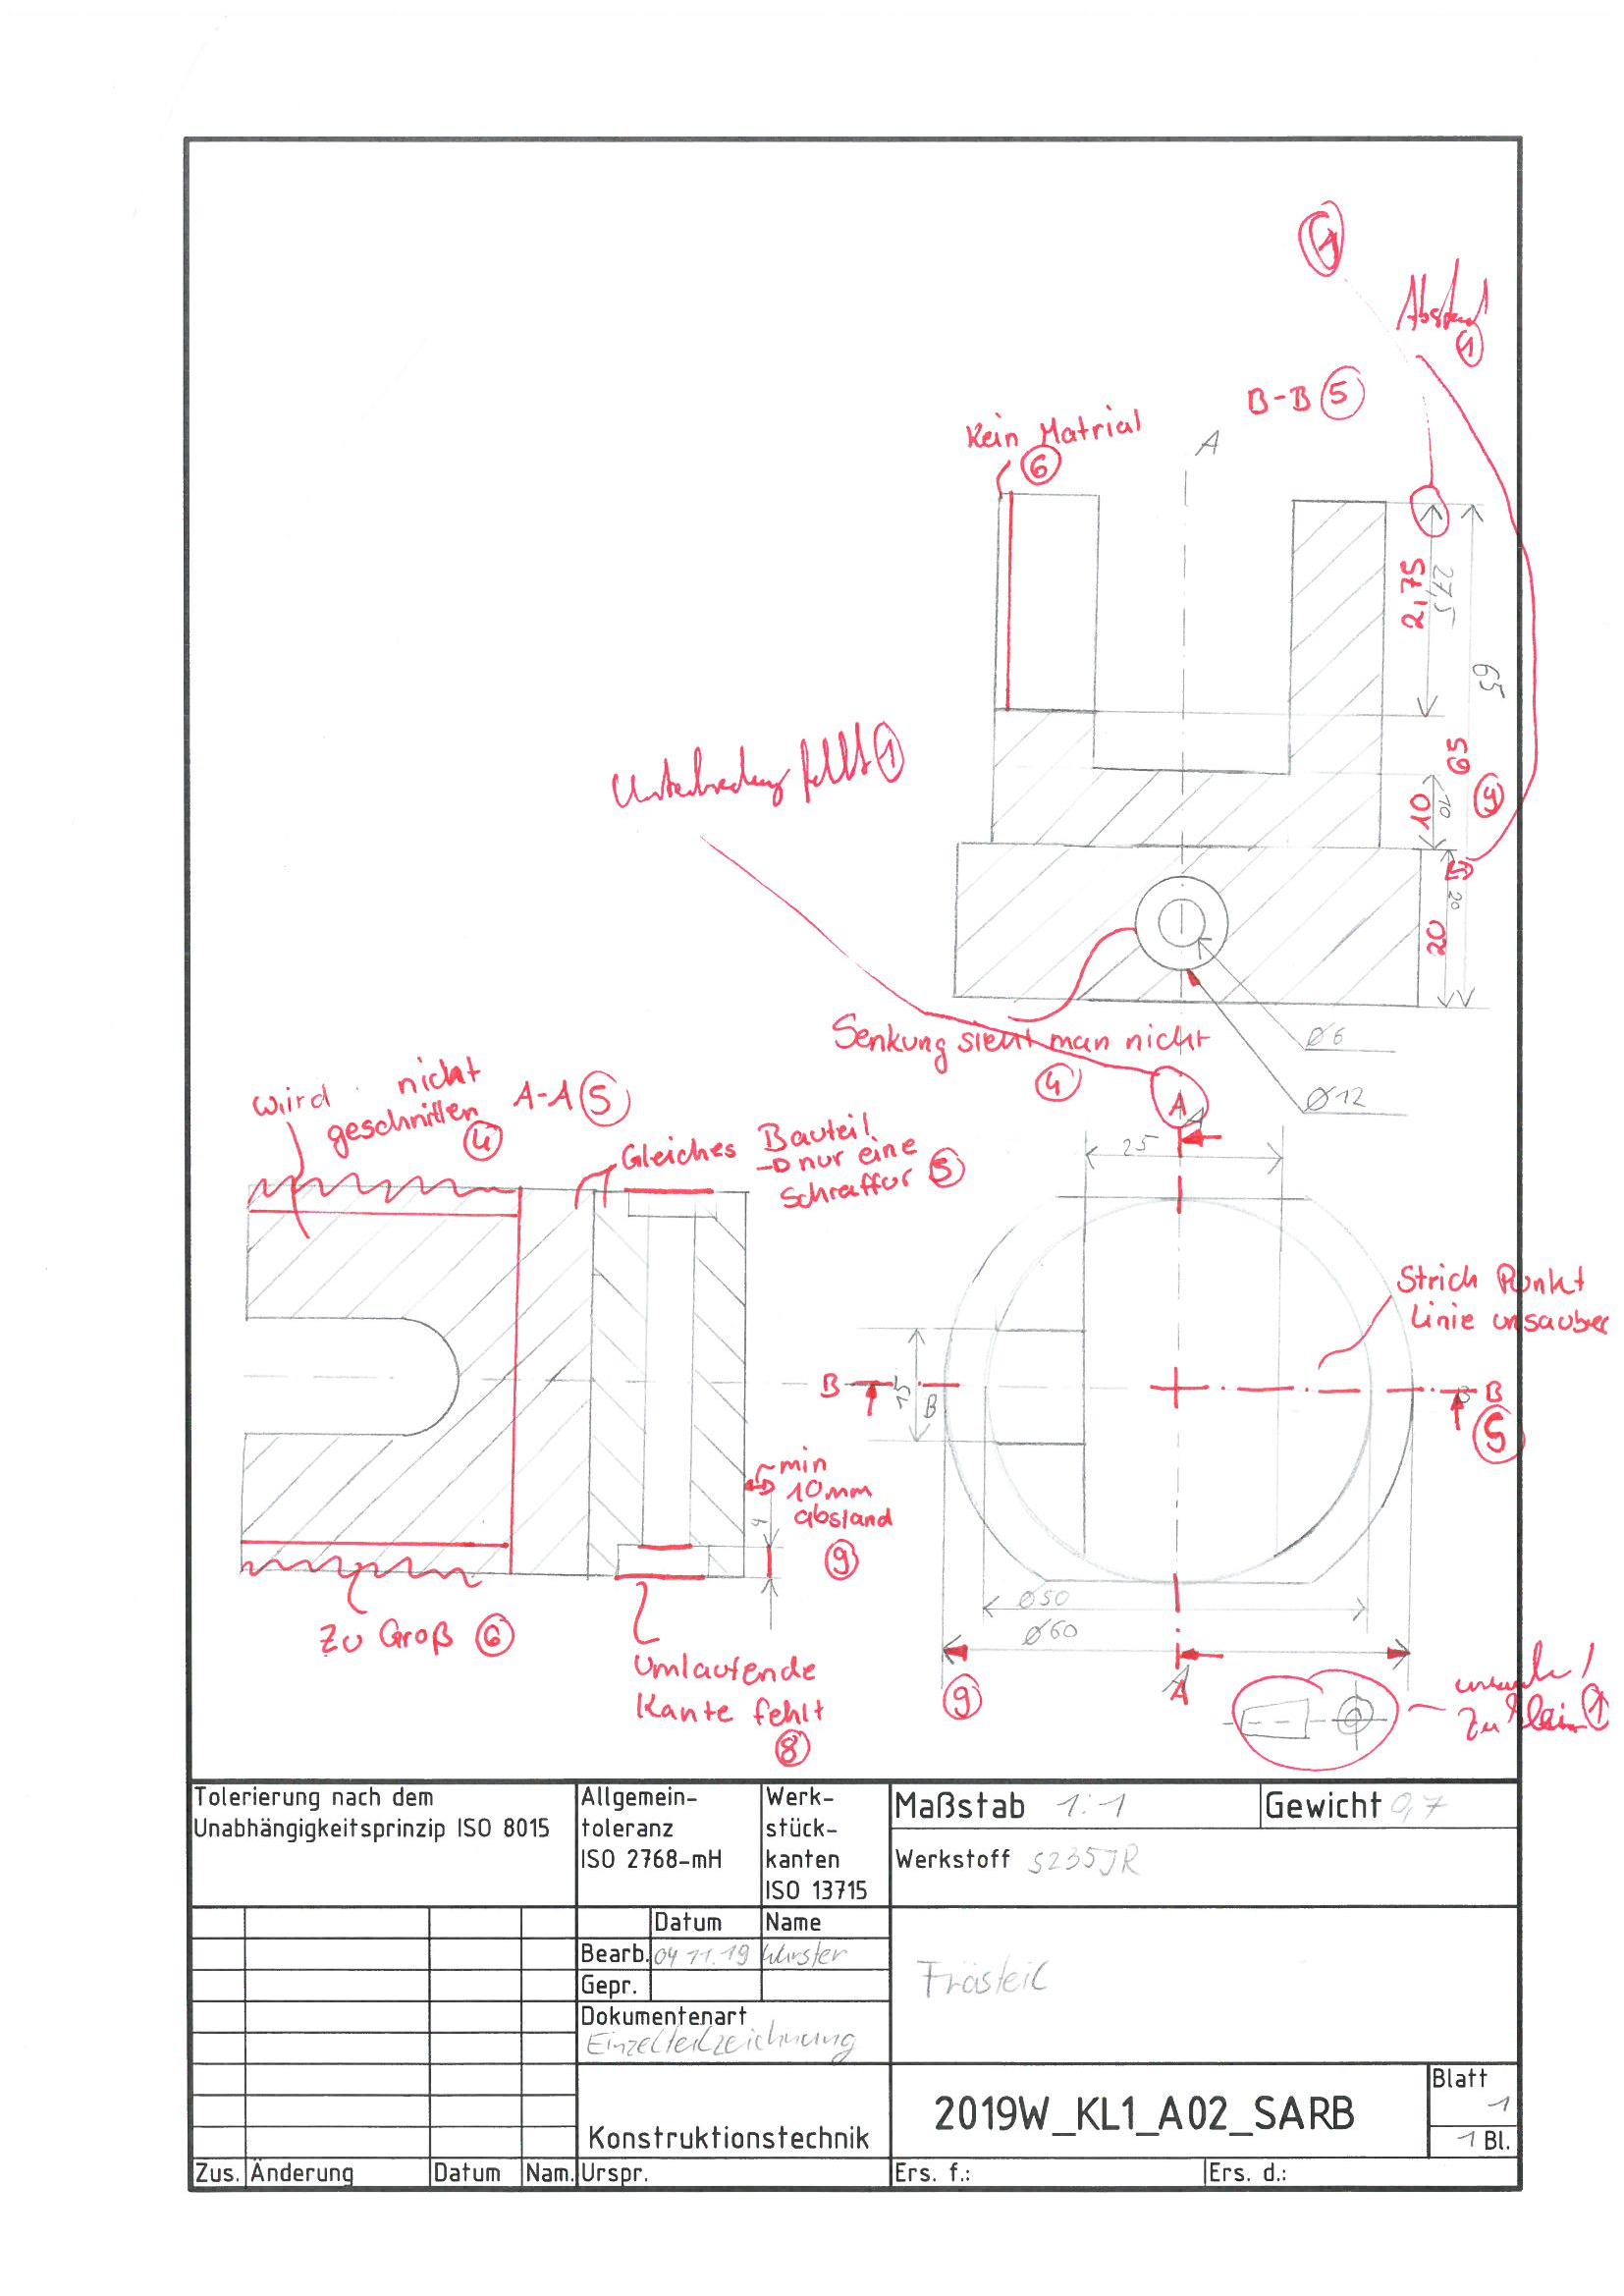 1
Abstand
1
B-B 5
Kein Matrial
6
A
2,75
27,5
65
65
10
10
9
20
20
Unterbrechung fehlt 1
Senkung sieht man nicht
4
Ø6
Ø12
wird nicht
geschnitten
4
A-A 5
Gleiches Bauteil
nur eine
Schraffur 5
A
A
25
Strich Punkt
Linie unsauber
B
15
B
B
B
5
min
10mm
abstand
9
4
Zu Groß 6
Umlaufende
Kante fehlt
8
Ø50
Ø60
9
A
A
zu klein 1
Tolerierung nach dem
Unabhängigkeitsprinzip ISO 8015
Allgemein-
toleranz
ISO 2768-mH
Werk-
stück-
kanten
ISO 13715
Maßstab 1:1
Gewicht 0,7
Werkstoff S235JR
Datum Name
Bearb. 04.11.19 Wurster
Gepr.
Frästeil
Dokumentenart
Einzelteilzeichnung
Konstruktionstechnik
2019W_KL1_A02_SARB
Blatt
1
1 Bl.
Zus. Änderung Datum Nam. Urspr. Ers. f.: Ers. d.: